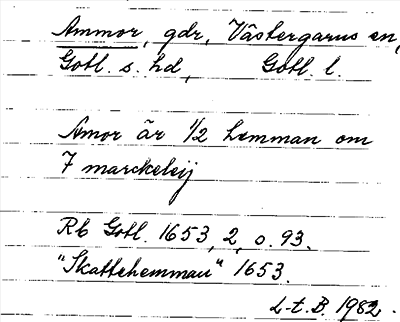 Ammor, gdr, Västergarns sn,
Gotl. s. hd, Gotl. l.
Amor är 1/2 hemman om
7 marckeleij
Rb Gotl. 1653, 2, o. 93.
"Skattehemman" 1653.
L-t. B. 1982.